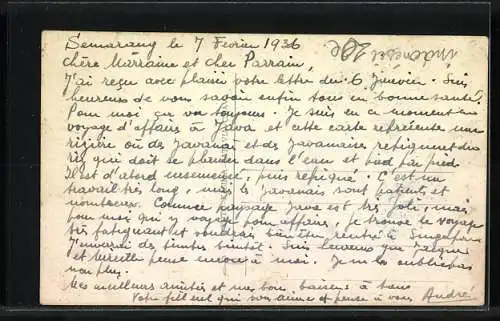 Semarang le 7 Février 1936
Indonesië 20c
Chère Marraine et cher Parrain,
J'ai reçu avec plaisir votre lettre du 6 Janvier. Suis
heureux de vous savoir enfin tous en bonne santé.
Pour moi ça va toujours. Je suis en ce moment en
voyage d'affaires à Java et cette carte représente une
rizière où des Javanais et des Javanaises repiquent du
riz qui doit se planter dans l'eau et pied par pied.
Il est d'abord ensemencé, puis repiqué. C'est un
travail très long, mais les Javanais sont patients et
nombreux. Comme paysage Java est très joli, mais
pour moi qui y voyage pour affaires, je trouve le voyage
très fatiguant et voudrais bien être rentré à Singapore
J'enverrai des timbres bientôt. Suis heureux que
et Mireille pense encore à moi. Je ne les oublie pas
non plus.
Mes meilleurs amitiés et mes bons baisers à tous
Votre filleul qui vous aime et pense à vous André